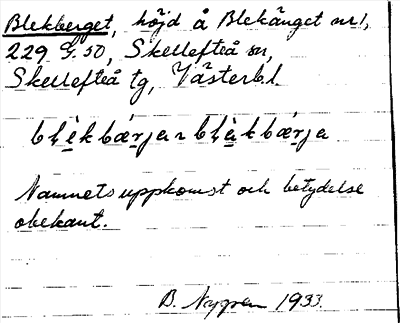 Blekberget, höjd å Blekänget nr 1,
229 G. 50, Skellefteå sn,
Skellefteå tg, Västerb. l.
Namnets uppkomst och betydelse
obekant.
B. Nygren 1933.